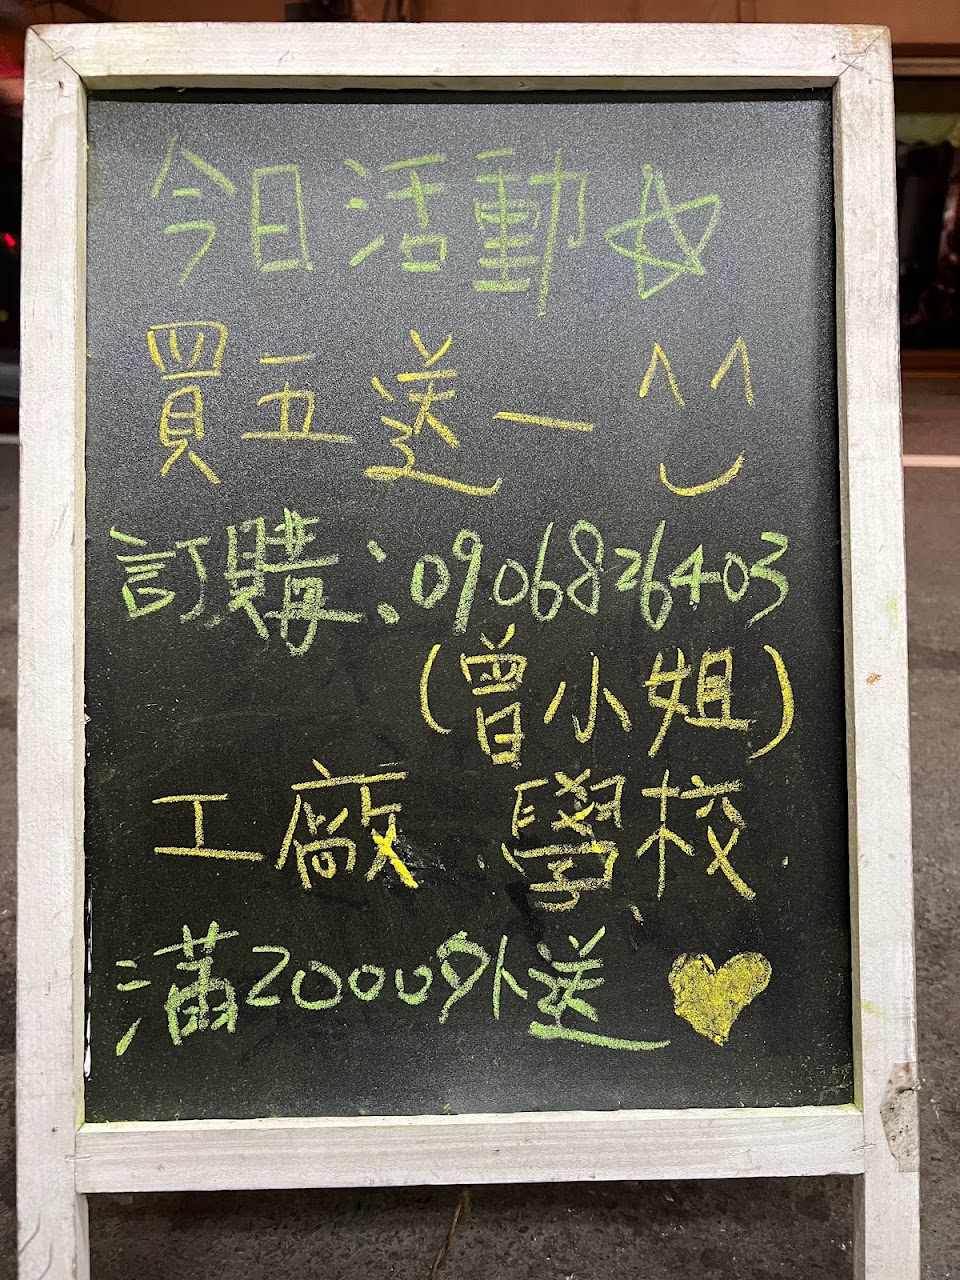 今日活動
買五送一
訂購:0906826403
(曾小姐)
工廠 學校
滿2000外送